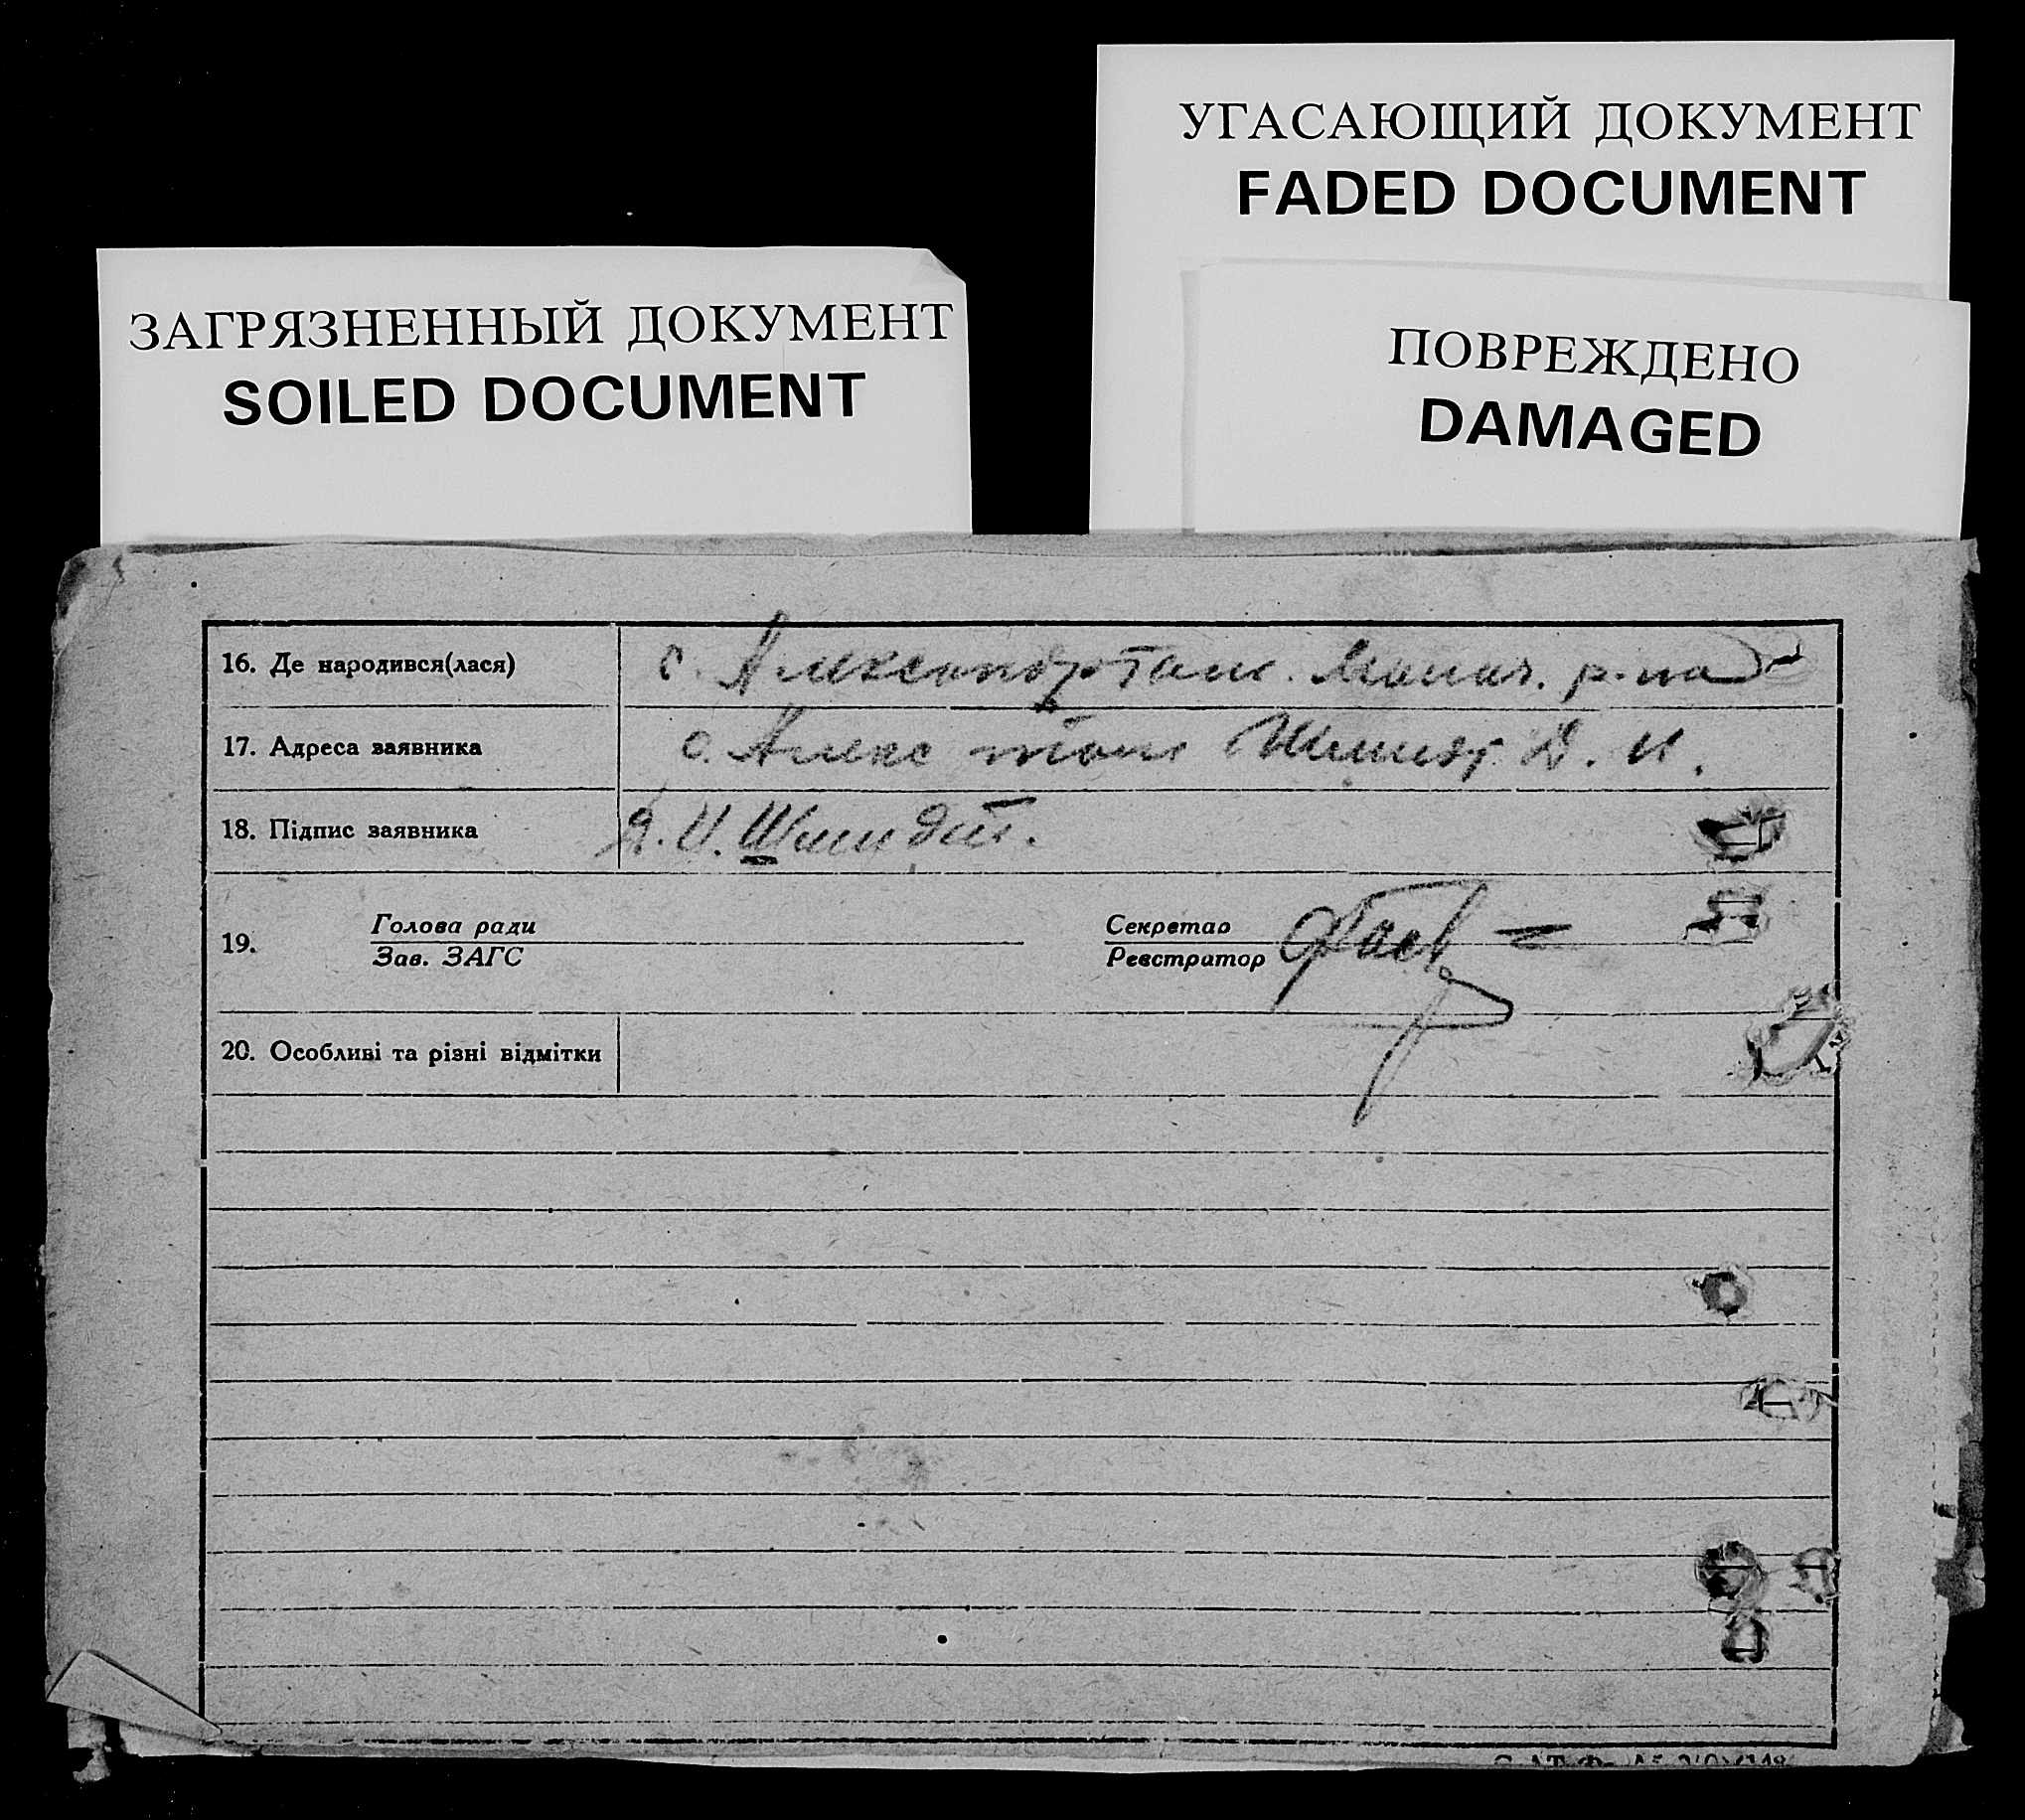 УГАСАЮЩИЙ ДОКУМЕНТ
FADED DOCUMENT
ЗАГРЯЗНЕННЫЙ ДОКУМЕНТ
SOILED DOCUMENT
ПОВРЕЖДЕНО
DAMAGED
16. Де народився(лася) с. Александрталь.
17. Адреса заявника с. Алекс таль Шмидт Д. И.
18. Підпис заявника Д. И. Шмидт.
19. Голова ради Секретар
Зав. ЗАГС Реєстратор
20. Особливі та різні відмітки